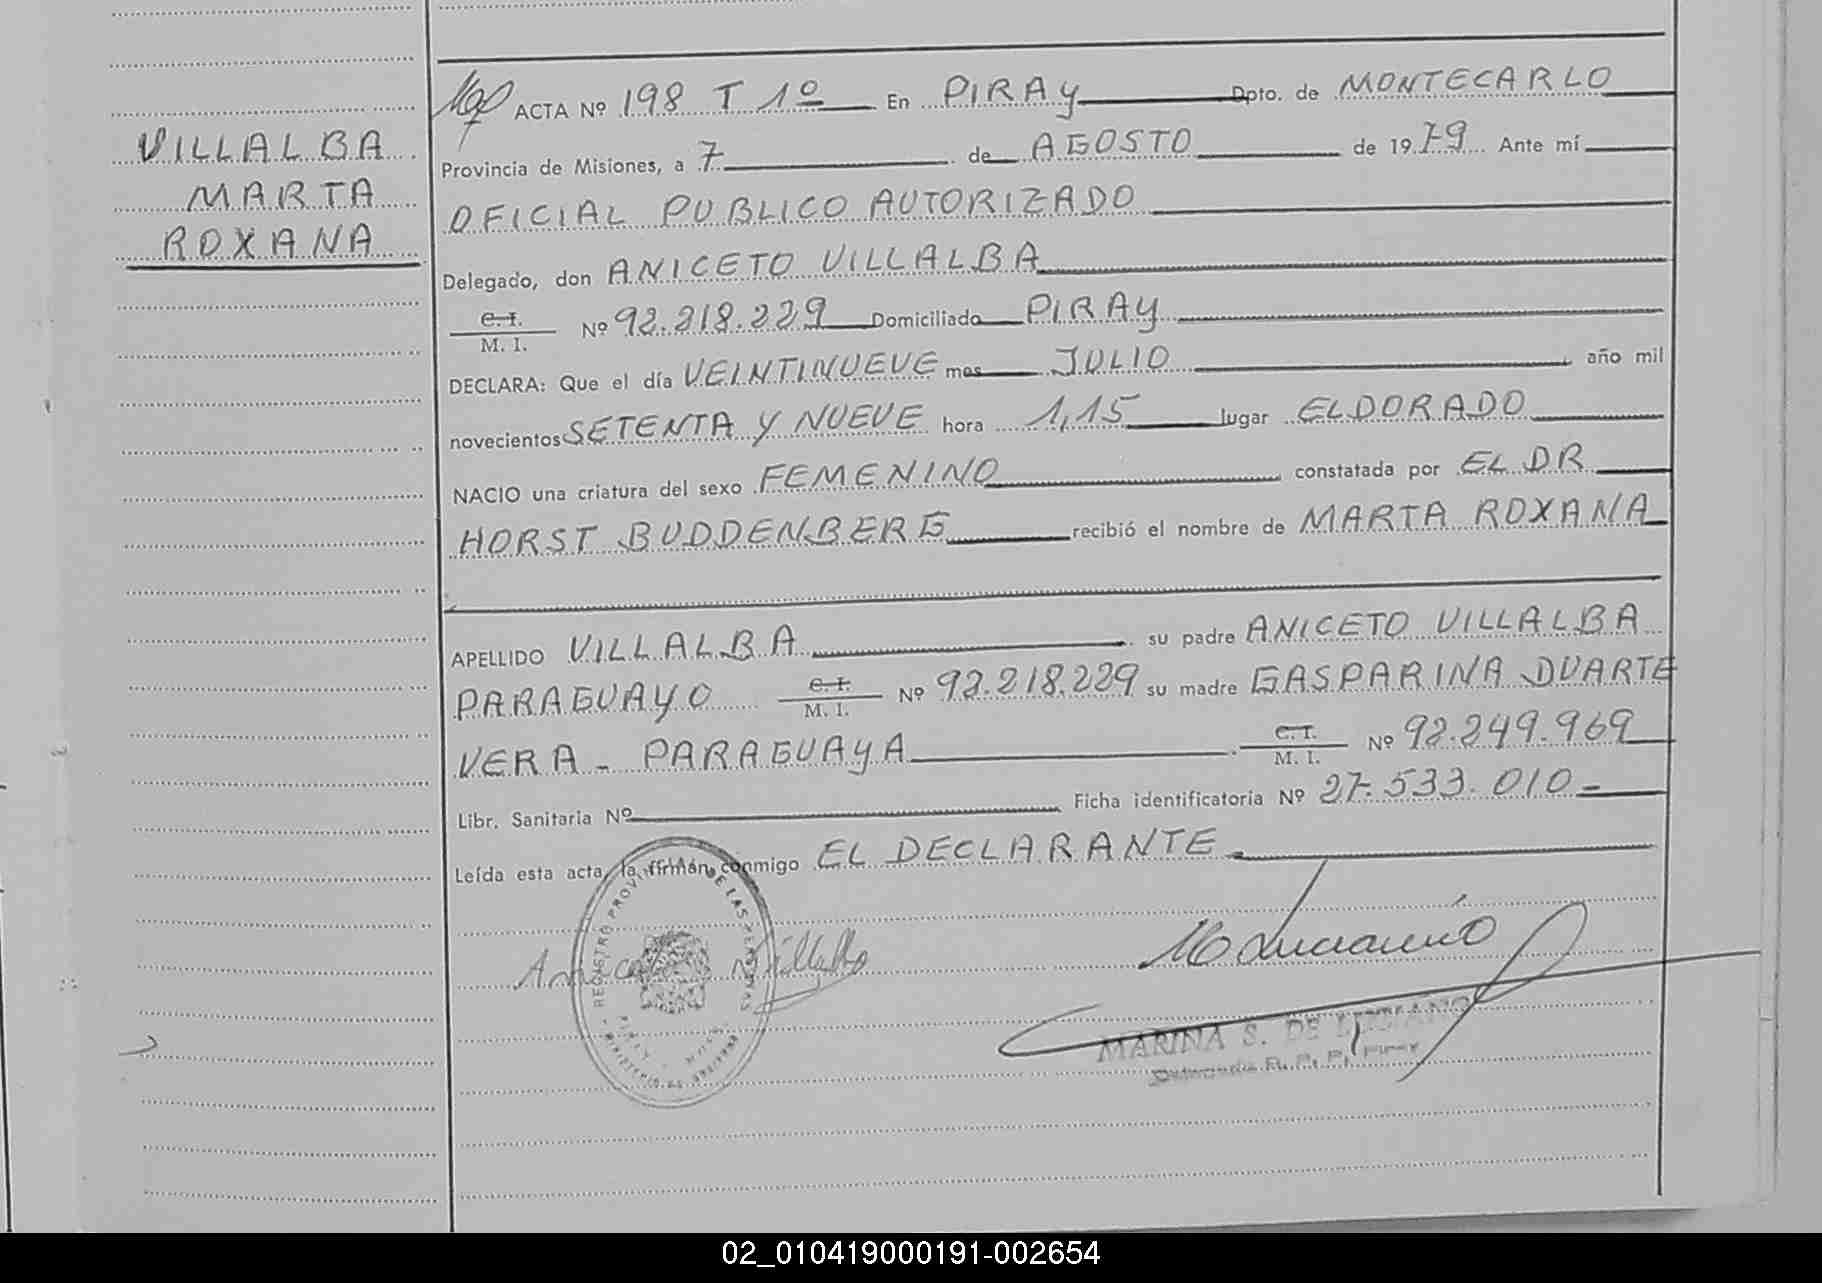 VILLALBA
MARTA
ROXANA
ACTA Nº 198 T 1º En PIRAY Dpto. de MONTECARLO
Provincia de Misiones, a 7 de AGOSTO de 1979 Ante mí
OFICIAL PUBLICO AUTORIZADO
Delegado, don ANICETO VILLALBA
C. I.
M. I. Nº 92.218.229 Domiciliado PIRAY
DECLARA: Que el día VEINTINUEVE mes JULIO año mil
novecientos SETENTA Y NUEVE hora 1,15 lugar ELDORADO
NACIO una criatura del sexo FEMENINO constatada por EL DR
HORST BUDDENBERG recibió el nombre de MARTA ROXANA
APELLIDO VILLALBA su padre ANICETO VILLALBA
PARAGUAYO C. I. M. I. Nº 92.218.229 su madre GASPARINA DUARTE
VERA - PARAGUAYA C. I. M. I. Nº 92.249.969
Libr. Sanitaria Nº Ficha identificatoria Nº 27.533.010-
Leída esta acta, la firman conmigo EL DECLARANTE
REGISTRO PROVINCIAL DE LAS PERSONAS
PIRAY
MINISTERIO DE GOBIERNO
Aniceto Villalba
MARINA S. DE LUCIANO
02_010419000191-002654